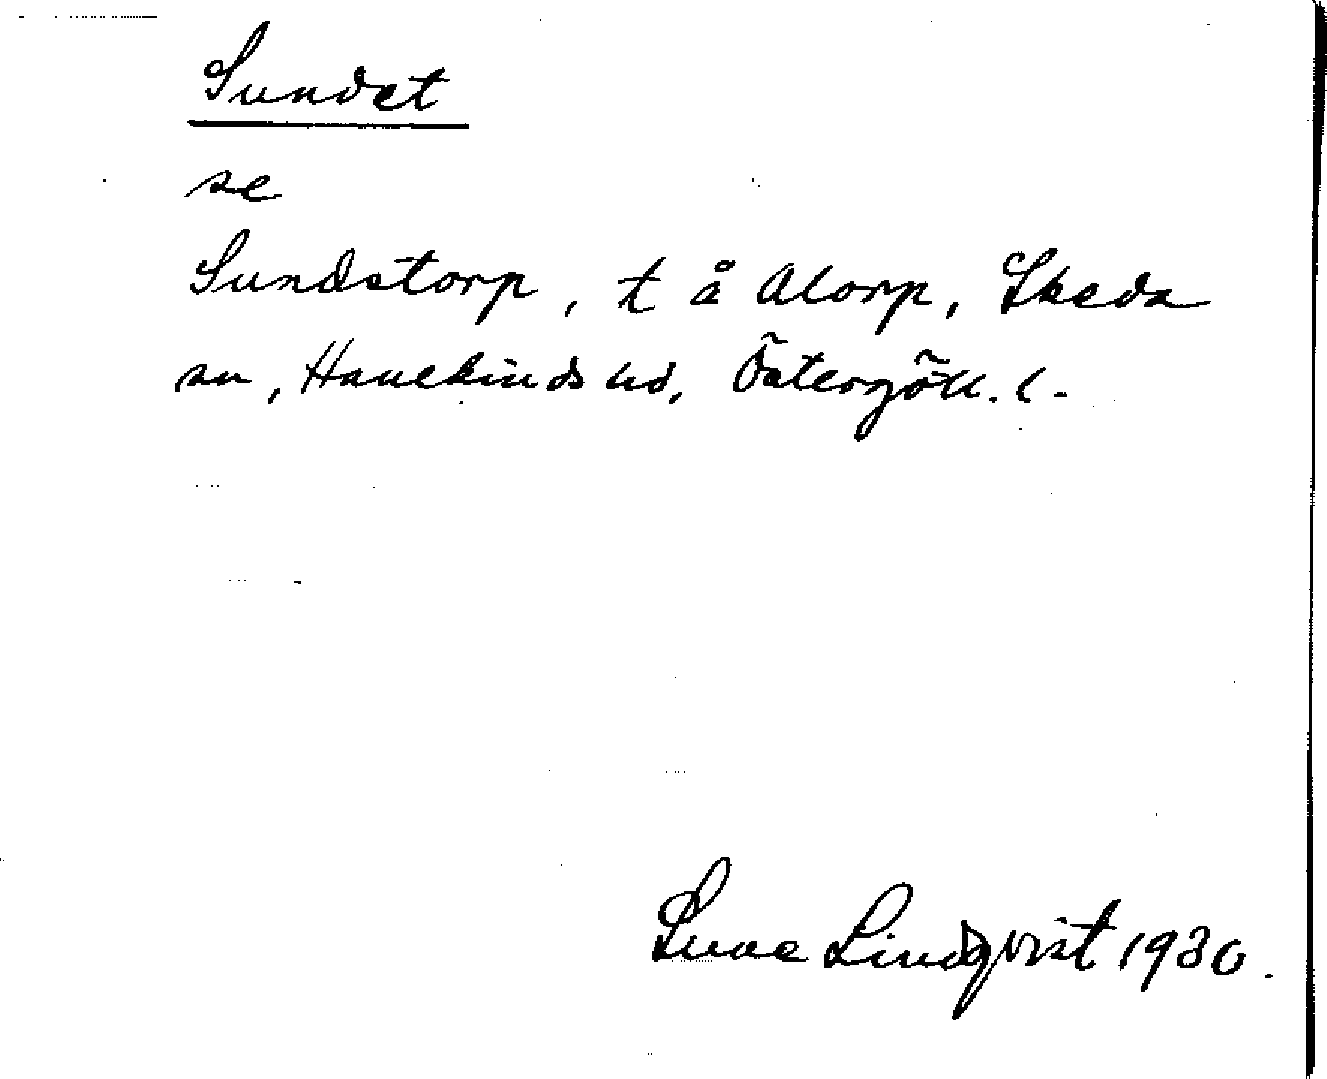 Sundet
se
Sundstorp, t å Alorp, Skeda
sn, Hanekinds hd, Östergötl. l.
Sune Lindqvist 1930.